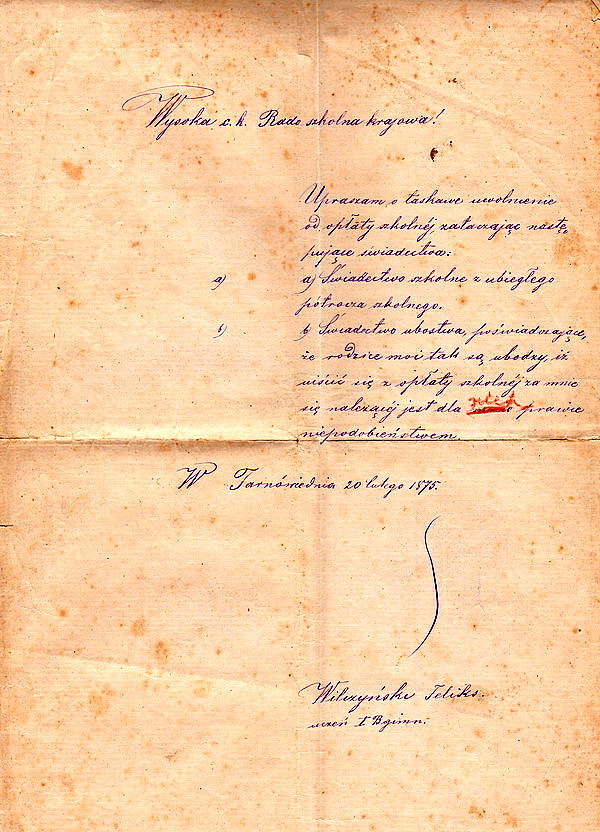 Wysoka c. k. Rado szkolna krajowa!
Upraszam o łaskawe uwolnienie
od opłaty szkolnéj, załączając nastę„
pujące świadectwa:
a) a) Świadectwo szkolne z ubiegłego
półrocza szkolnego.
b) b) Świadectwo ubóstwa, poświadczające,
że rodzice moi tak są ubodzy, iż
uiścić się z opłaty szkolnéj za mnie
się należącéj jest dla nich prawie
niepodobieństwem.
W Tarnowie dnia 20 lutego 1875.
Wilczyński Feliks.
uczeń I B gimn.